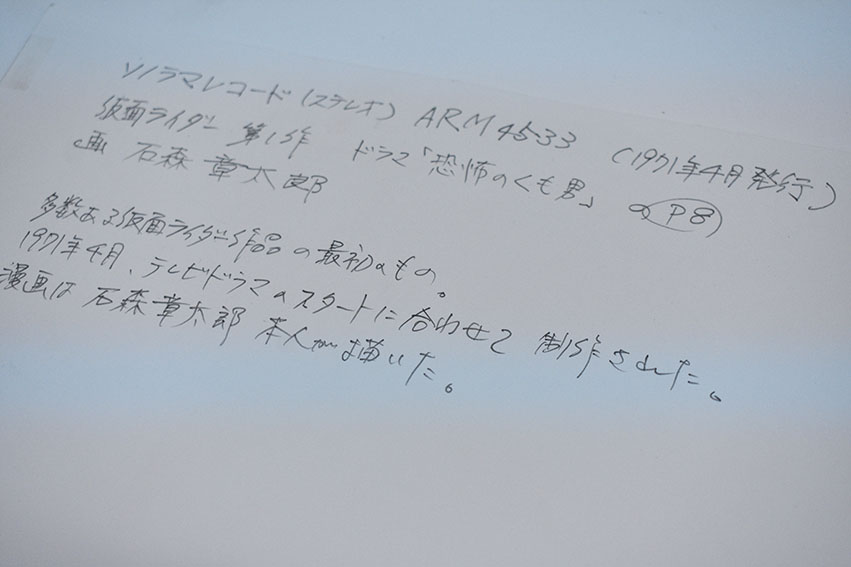 ソノラマレコード(ステレオ) ARM4533 (1971年4月発行)
仮面ライダー 第1作 ドラマ「恐怖のくも男」 のP8
画 石森 章太郎
多数ある仮面ライダー作品の最初のもの。
1971年4月、テレビドラマのスタートに合わせて 制作された。
漫画は 石森章太郎 本人が描いた。